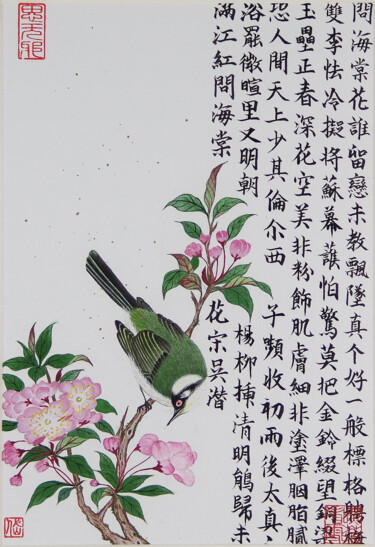 問海棠花誰留戀未教飄墜真个好一般標格聘梅
雙李怯冷擬將蘇幕護怕驚莫把金鈴綴望銅梁
玉壘正春深花空美非粉飾肌膚細非塗澤胭脂膩
恐人間天上少其倫尒西子顰收初雨後太真
浴罷微暄里又明朝楊柳插清明鵑歸未
滿江紅問海棠花宋吳潛
思无邪